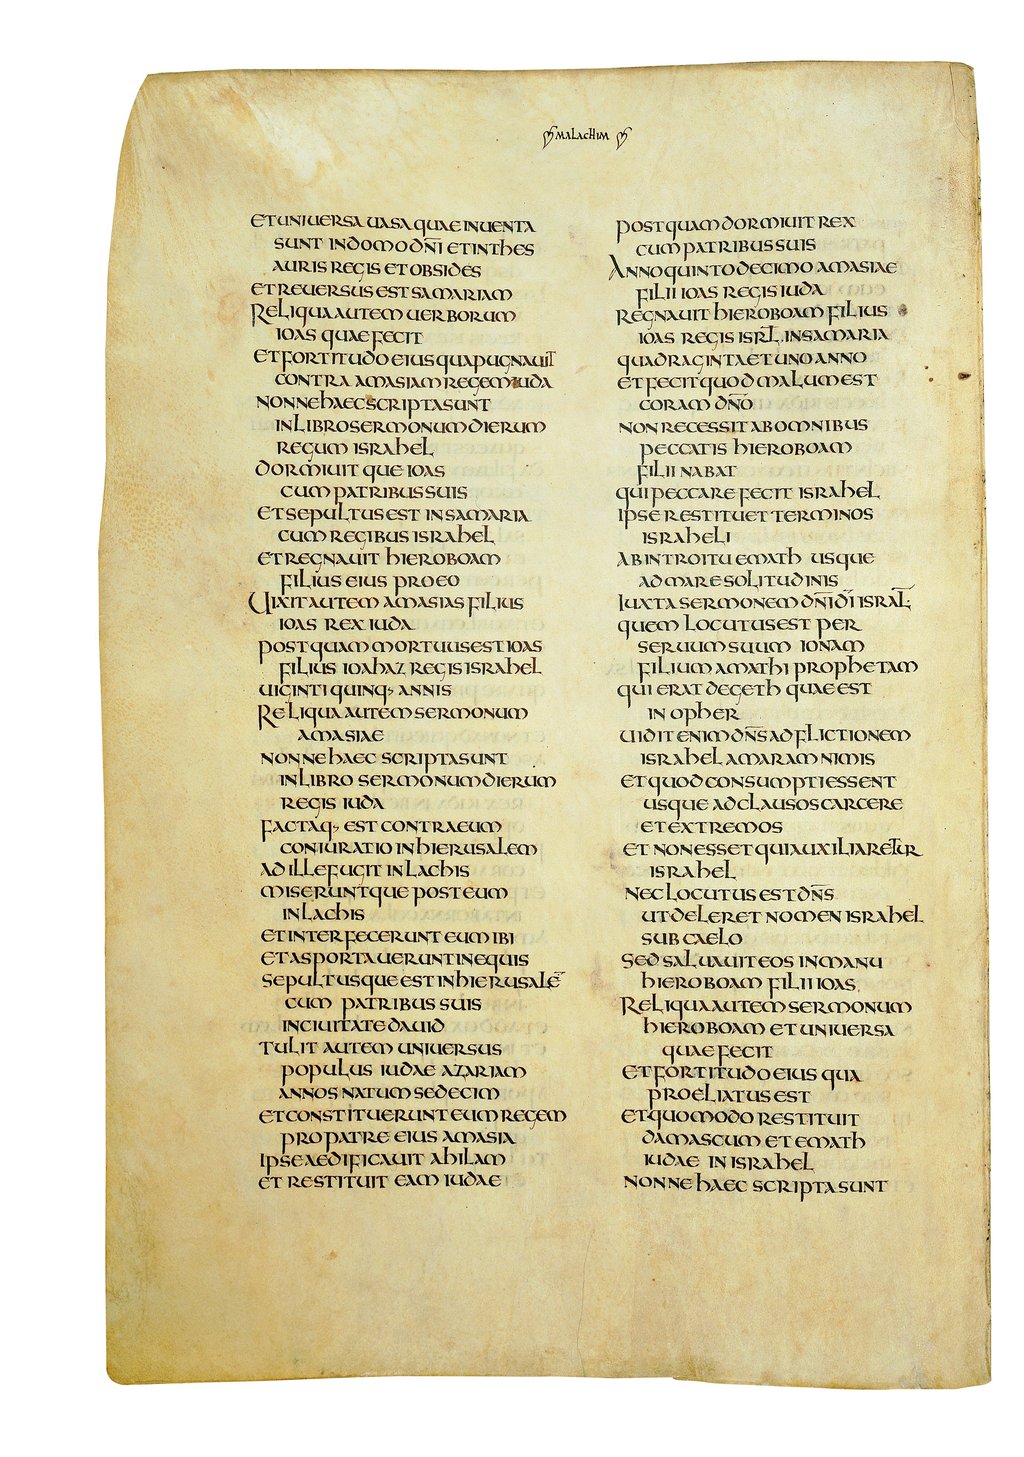 MALACHIM
ET UNIVERSA UASA QUAE INUENTA
SUNT IN DOMO DN̅I ET IN THES
AURIS REGIS ET OBSIDES
ET REUERSUS EST SAMARIAM
RELIQUA AUTEM UERBORUM
IOAS QUAE FECIT
ET FORTITUDO EIUS QUA PUGNAUIT
CONTRA AMASIAM REGEM IUDA
NONNE HAEC SCRIPTA SUNT
IN LIBRO SERMONUM DIERUM
REGUM ISRAHEL
DORMIUIT QUE IOAS
CUM PATRIBUS SUIS
ET SEPULTUS EST IN SAMARIA
CUM REGIBUS ISRAHEL
ET REGNAUIT HIEROBOAM
FILIUS EIUS PRO EO
UIXIT AUTEM AMASIAS FILIUS
IOAS REX IUDA
POSTQUAM MORTUUS EST IOAS
FILIUS IOAHAZ REGIS ISRAHEL
UIGINTI QUINQ, ANNIS
RELIQUA AUTEM SERMONUM
AMASIAE
NONNE HAEC SCRIPTA SUNT
IN LIBRO SERMONUM DIERUM
REGIS IUDA
FACTAQ, EST CONTRA EUM
CONIURATIO IN HIERUSALEM
AD ILLE FUGIT IN LACHIS
MISERUNTQUE POST EUM
IN LACHIS
ET INTERFECERUNT EUM IBI
ET ASPORTAUERUNT IN EQUIS
SEPULTUSQUE EST IN HIERUSALE̅
CUM PATRIBUS SUIS
IN CIUITATE DAUID
TULIT AUTEM UNIUERSUS
POPULUS IUDAE AZARIAM
ANNOS NATUM SEDECIM
ET CONSTITUERUNT EUM REGEM
PRO PATRE EIUS AMASIA
IPSE AEDIFICAUIT AHILAM
ET RESTITUIT EAM IUDAE
POSTQUAM DORMIUIT REX
CUM PATRIBUS SUIS
ANNO QUINTODECIMO AMASIAE
FILII IOAS REGIS IUDA
REGNAUIT HIEROBOAM FILIUS
IOAS REGIS ISRL̅. IN SAMARIA
QUADRAGINTA ET UNO ANNO
ET FECIT QUOD MALUM EST
CORAM DN̅O
NON RECESSIT AB OMNIBUS
PECCATIS HIEROBOAM
FILII NABAT
QUI PECCARE FECIT ISRAHEL
IPSE RESTITUET TERMINOS
ISRAHELI
AB INTROITU EMATH USQUE
AD MARE SOLITUDINIS
IUXTA SERMONEM DN̅I DI̅ ISRAL̅
QUEM LOCUTUS EST PER
SERUUM SUUM IONAM
FILIUM AMATHI PROPHETAM
QUI ERAT DE GETH QUAE EST
IN OPHER
UIDIT ENIM DN̅S ADFLICTIONEM
ISRAHEL AMARAM NIMIS
ET QUOD CONSUMPTI ESSENT
USQUE AD CLAUSOS CARCERE
ET EXTREMOS
ET NON ESSET QUI AUXILIARETUR
ISRAHEL
NEC LOCUTUS EST DN̅S
UT DELERET NOMEN ISRAHEL
SUB CAELO
SED SALUAUIT EOS IN MANU
HIEROBOAM FILII IOAS
RELIQUA AUTEM SERMONUM
HIEROBOAM ET UNIUERSA
QUAE FECIT
ET FORTITUDO EIUS QUA
PROELIATUS EST
ET QUOMODO RESTITUIT
DAMASCUM ET EMATH
IUDAE IN ISRAHEL
NONNE HAEC SCRIPTA SUNT